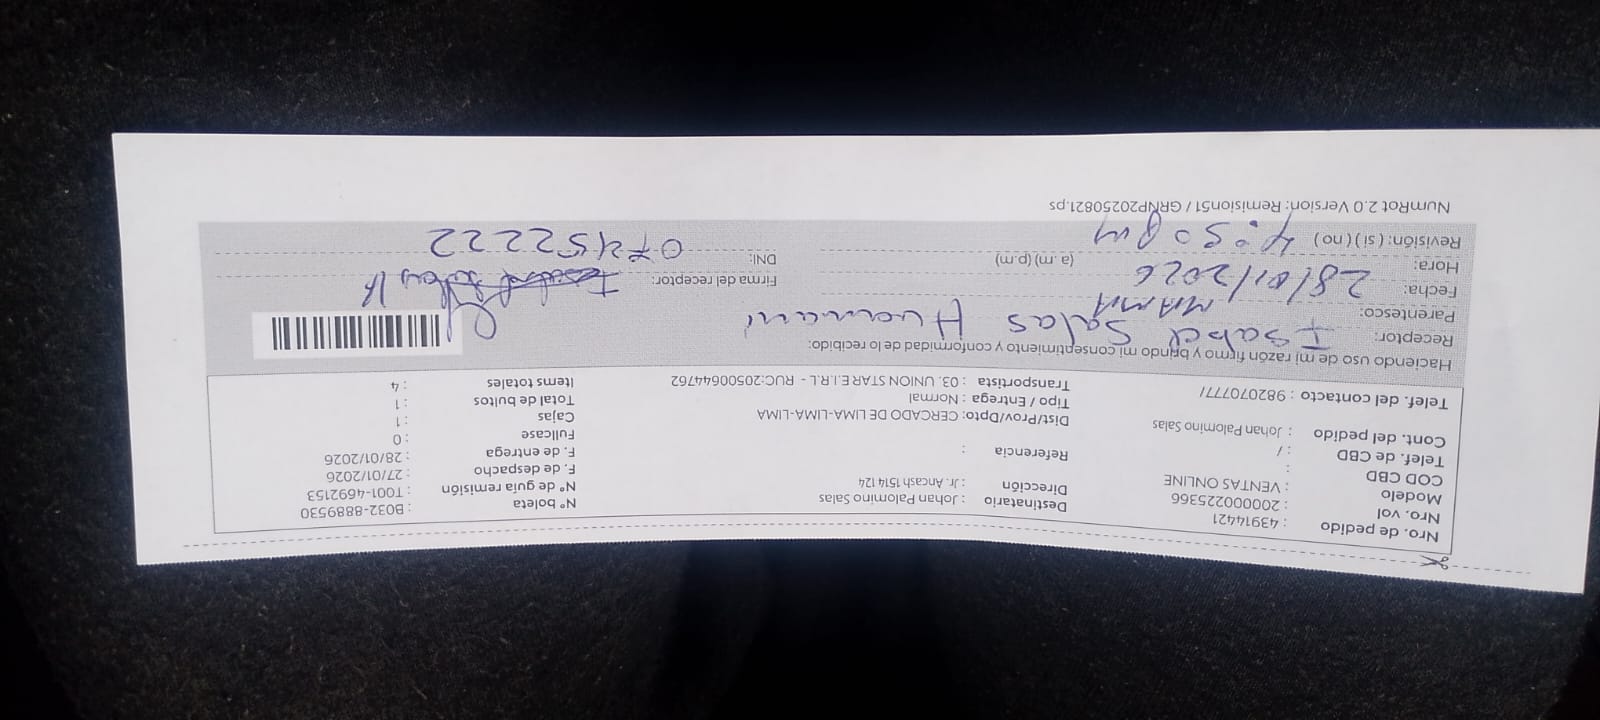 Nro. de pedido : 43914421
Nro. vol : 2000002253366
Modelo : VENTAS ONLINE
COD CBD :
Telef. de CBD : /
Cont. del pedido : Johan Palomino Salas
Telef. del contacto : 982070777/
Destinatario : Johan Palomino Salas
Dirección : Jr. Ancash 1514 124
Referencia :
Dist/Prov/Dpto: CERCADO DE LIMA-LIMA-LIMA
Tipo / Entrega : Normal
Transportista : 03. UNION STAR E.I.R.L - RUC:20500644762
N° boleta : B032-8889530
N° de guía remisión : T001-4692153
F. de despacho : 27/01/2026
F. de entrega : 28/01/2026
Fullcase : 0
Cajas : 1
Total de bultos : 1
Items totales : 4
Haciendo uso de mi razón firmo y brindo mi consentimiento y conformidad de lo recibido:
Receptor: Isabel Salas Huamaní
Parentesco: MAMA
Fecha: 28/01/2026
Hora: (a.m) (p.m)
Revisión: ( si ) ( no ) 4:50 pm
Firma del receptor:
DNI: 07452222
NumRot 2.0 Version: Remision51 / GRNP20250821.ps